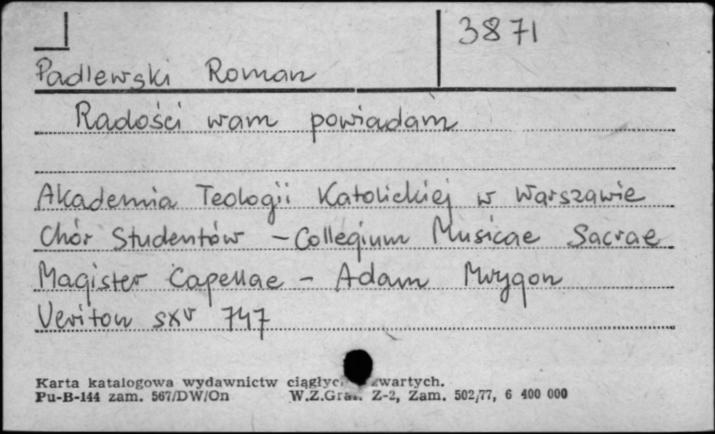 3871
Padlewski Roman
Radości wam powiadam
Akademia Teologii Katolickiej w Warszawie
Chór Studentów - Collegium Musicae Sacrae
Magister Capellae - Adam Mrygon
Veriton sxv 747
Karta katalogowa wydawnictw ciągłyc zwartych.
Pu-B-144 zam. 567/DW/On W.Z.Graf. Z-2, Zam. 502/77, 6 400 000